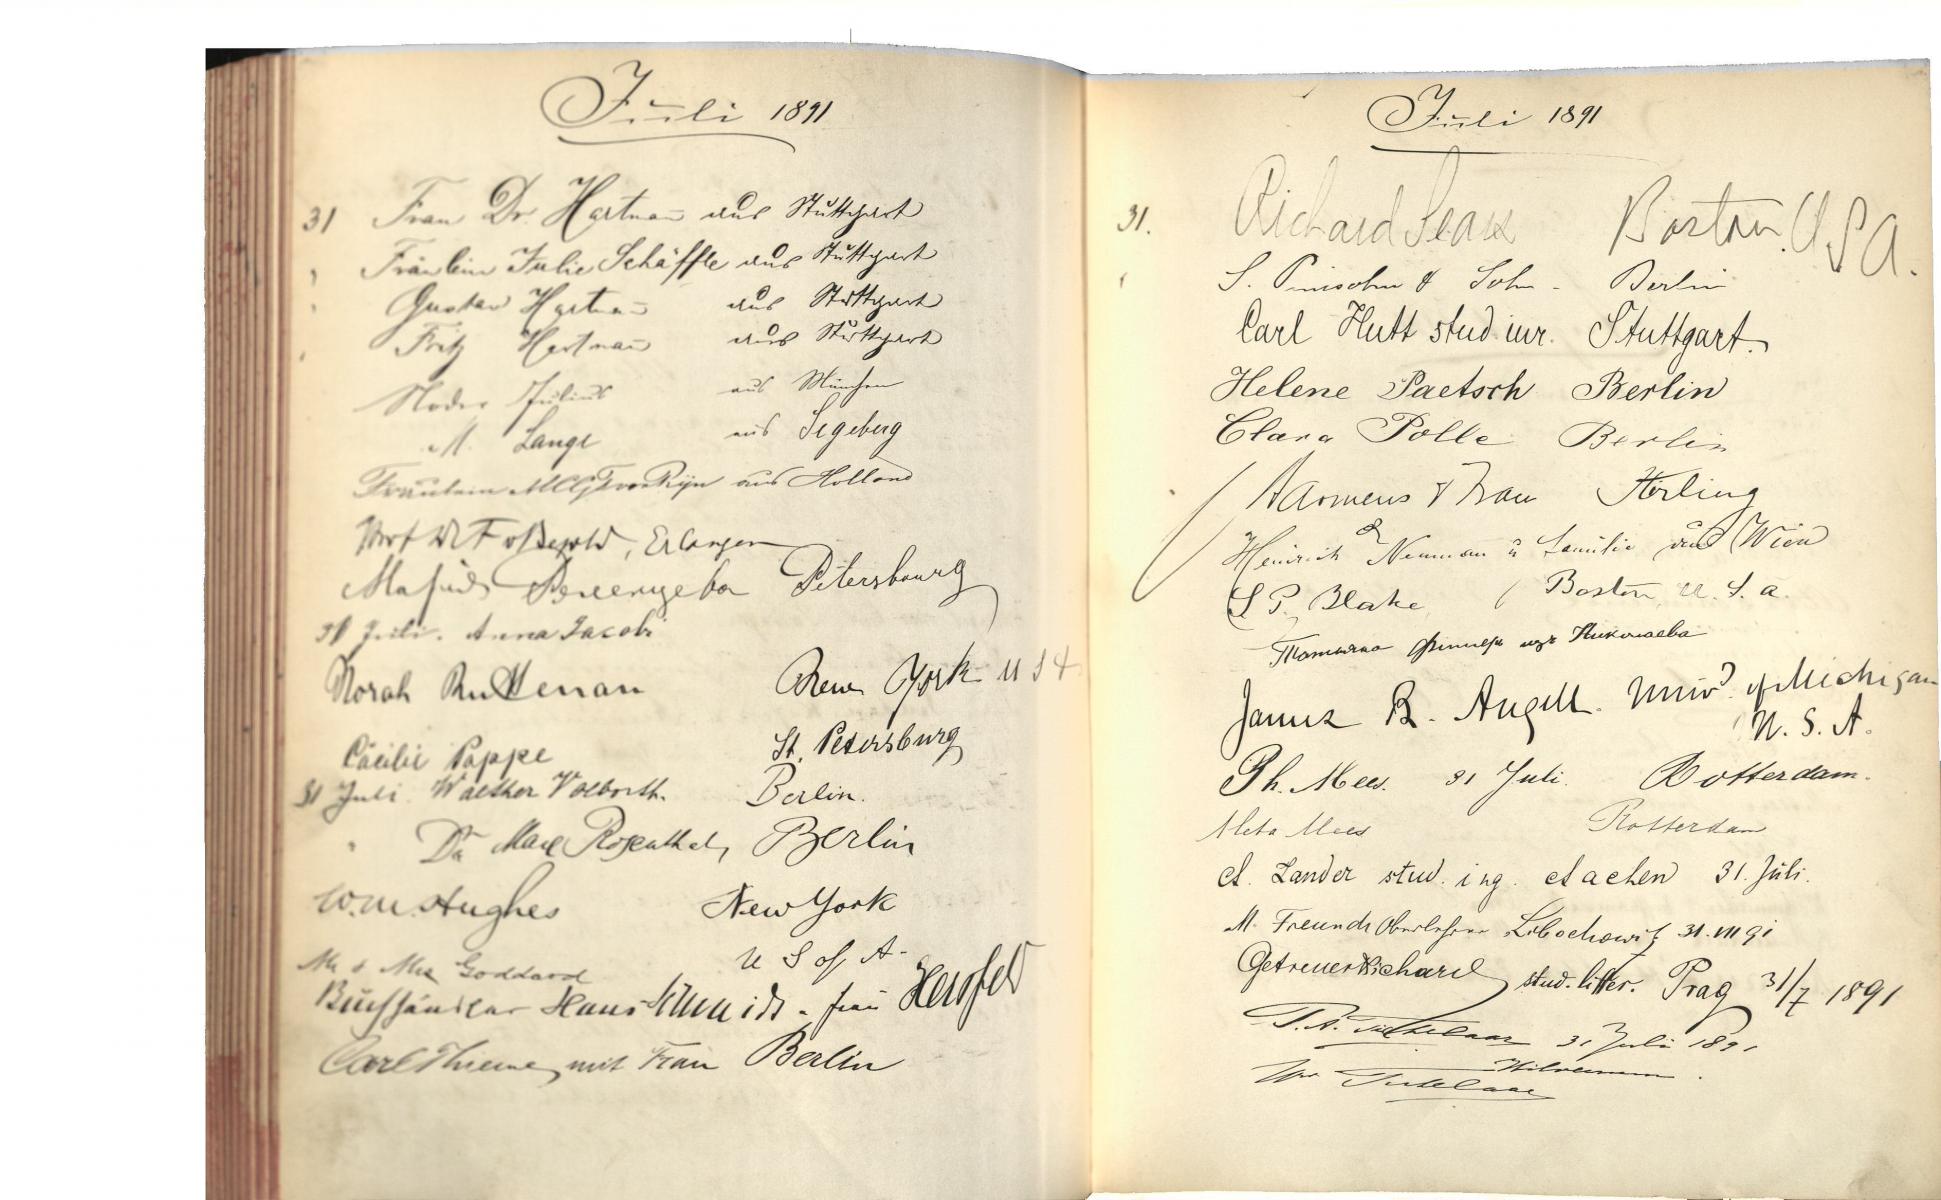 Juli 1891
31 Frau Dr. Hartman̄ aus Stuttgart
" Fräulein Julie Schäffle aus Stuttgart
" Gustav Hartman̄ aus Stuttgart
" Fritz Hartman̄ aus Stuttgart
Julius aus München
M. Lange aus Segeberg
Fräulein aus Holland
Prof Dr F Erlangen
Petersbourg
31 Juli. Anna Jacobi
Norah New York U S A
Cäcilie Pappe St. Petersburg
31 Juli. Walther Volborth. Berlin.
" Dr. Max Rosenthal, Berlin
W. M. Hughes New York
U S of A-
Mr & Mrs Goddard
Buchhändler Hans Schmidt - Frau Hersfeld
Carl Thieme mit Frau Berlin
Juli 1891
31. Richard Sears Boston. U S A.
" S. Pinsohn & Sohn - Berlin
Carl Hutt stud iur. Stuttgart.
Helene Paetsch Berlin
Clara Polle Berlin
& Frau
Heinrich Neumann u Familie aus Wien
S P. Blake Boston, U. S. A.
изъ Николаева
James B. Angell. Univ. of Michigan
U. S. A.
Ph. Mees. 31 Juli. Rotterdam.
Meta Mees Rotterdam
A. Lander stud. ing. Aachen 31. Juli.
M. Freund Oberlehrer Libochowitz 31.VII 91
Getreuer Richard stud. litter. Prag 31/7 1891
P. A. 31 Juli 1891
Hilversum.